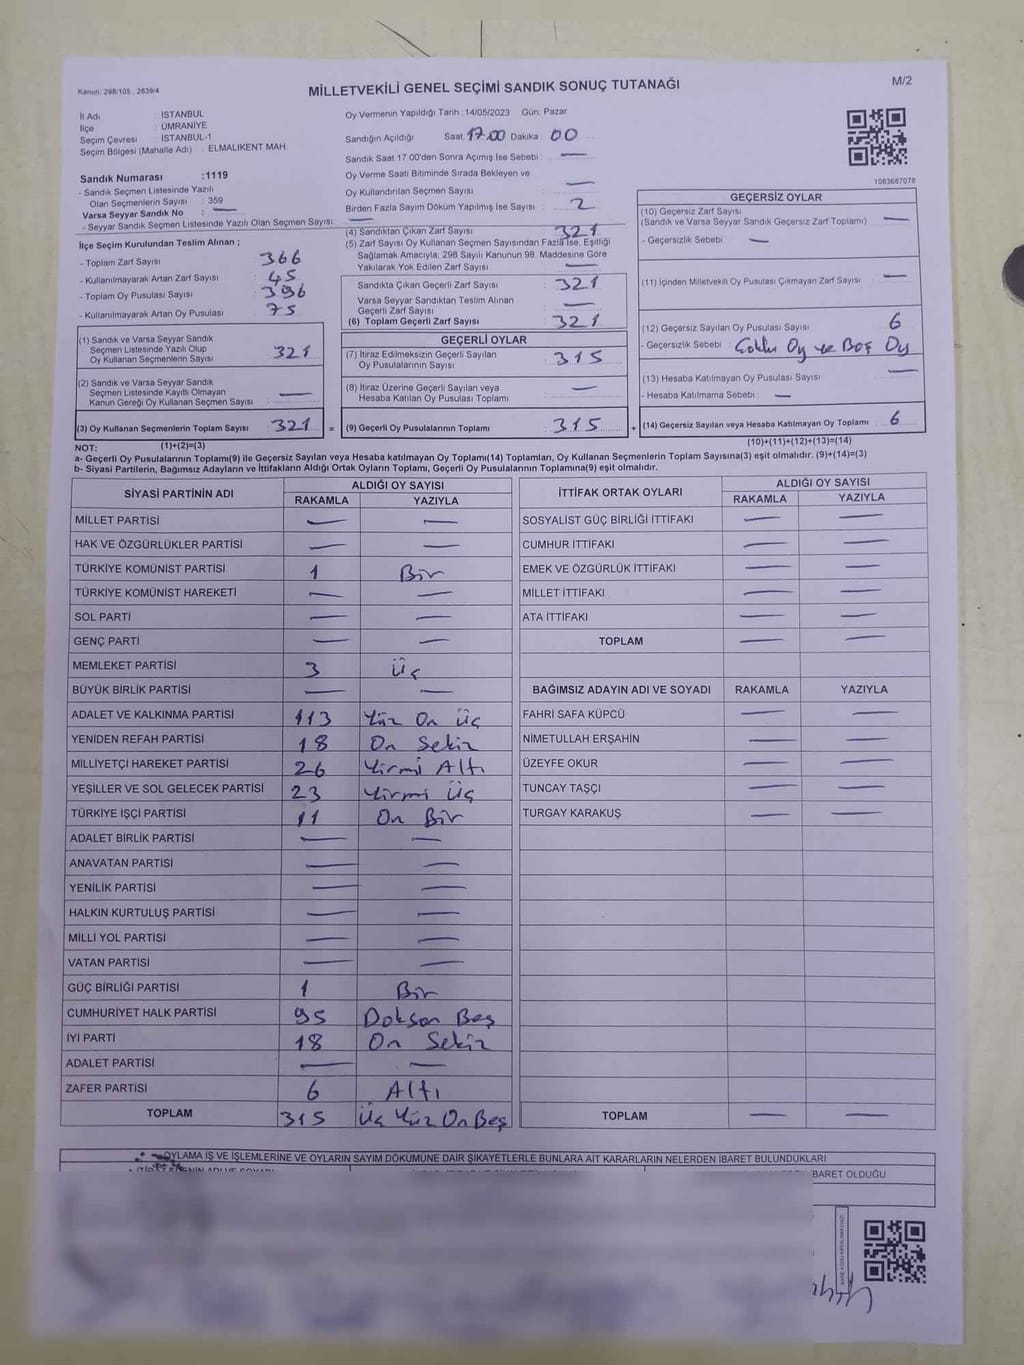 Kanun: 298/105 , 2839/4
MİLLETVEKİLİ GENEL SEÇİMİ SANDIK SONUÇ TUTANAĞI
M/2
İl Adı : İSTANBUL
İlçe : ÜMRANİYE
Seçim Çevresi : İSTANBUL-1
Seçim Bölgesi (Mahalle Adı) : ELMALIKENT MAH.
Sandık Numarası :1119
- Sandık Seçmen Listesinde Yazılı
Olan Seçmenlerin Sayısı : 359
Varsa Seyyar Sandık No : —
- Seyyar Sandık Seçmen Listesinde Yazılı Olan Seçmen Sayısı: —
Oy Vermenin Yapıldığı Tarih :14/05/2023 Gün: Pazar
Sandığın Açıldığı Saat: 17.00 Dakika: 00
Sandık Saat 17.00'den Sonra Açımış İse Sebebi: —
Oy Verme Saati Bitiminde Sırada Bekleyen ve
Oy Kullandırılan Seçmen Sayısı —
Birden Fazla Sayım Döküm Yapılmış İse Sayısı : 2
1083687078
İlçe Seçim Kurulundan Teslim Alınan ;
- Toplam Zarf Sayısı : 366
- Kullanılmayarak Artan Zarf Sayısı : 45
- Toplam Oy Pusulası Sayısı : 396
- Kullanılmayarak Artan Oy Pusulası : 75
(1) Sandık ve Varsa Seyyar Sandık
Seçmen Listesinde Yazılı Olup
Oy Kullanan Seçmenlerin Sayısı 321
(2) Sandık ve Varsa Seyyar Sandık
Seçmen Listesinde Kayıtlı Olmayan
Kanun Gereği Oy Kullanan Seçmen Sayısı —
(3) Oy Kullanan Seçmenlerin Toplam Sayısı : 321 =
(4) Sandıktan Çıkan Zarf Sayısı 321
(5) Zarf Sayısı Oy Kullanan Seçmen Sayısından Fazla İse, Eşitliği
Sağlamak Amacıyla, 298 Sayılı Kanunun 98. Maddesine Göre
Yakılarak Yok Edilen Zarf Sayısı —
Sandıkta Çıkan Geçerli Zarf Sayısı : 321
Varsa Seyyar Sandıktan Teslim Alınan
Geçerli Zarf Sayısı —
(6) Toplam Geçerli Zarf Sayısı : 321
GEÇERLİ OYLAR
(7) İtiraz Edilmeksizin Geçerli Sayılan
Oy Pusulalarının Sayısı : 315
(8) İtiraz Üzerine Geçerli Sayılan veya
Hesaba Katılan Oy Pusulası Toplamı —
(9) Geçerli Oy Pusulalarının Toplamı : 315 +
GEÇERSİZ OYLAR
(10) Geçersiz Zarf Sayısı
(Sandık ve Varsa Seyyar Sandık Geçersiz Zarf Toplamı) —
- Geçersizlik Sebebi : —
(11) İçinden Milletvekili Oy Pusulası Çıkmayan Zarf Sayısı : —
(12) Geçersiz Sayılan Oy Pusulası Sayısı : 6
- Geçersizlik Sebebi : Çoklu Oy ve Boş Oy
(13) Hesaba Katılmayan Oy Pusulası Sayısı : —
- Hesaba Katılmama Sebebi : —
(14) Geçersiz Sayılan veya Hesaba Katılmayan Oy Toplamı : 6
NOT: (1)+(2)=(3) (10)+(11)+(12)+(13)=(14)
a- Geçerli Oy Pusulalarının Toplamı(9) ile Geçersiz Sayılan veya Hesaba katılmayan Oy Toplamı(14) Toplamları, Oy Kullanan Seçmenlerin Toplam Sayısına(3) eşit olmalıdır. (9)+(14)=(3)
b- Siyasi Partilerin, Bağımsız Adayların ve İttifakların Aldığı Ortak Oyların Toplamı, Geçerli Oy Pusulalarının Toplamına(9) eşit olmalıdır.
SİYASİ PARTİNİN ADI ALDIĞI OY SAYISI
RAKAMLA YAZIYLA
MİLLET PARTİSİ — —
HAK VE ÖZGÜRLÜKLER PARTİSİ — —
TÜRKİYE KOMÜNİST PARTİSİ 1 Bir
TÜRKİYE KOMÜNİST HAREKETİ — —
SOL PARTİ — —
GENÇ PARTİ — —
MEMLEKET PARTİSİ 3 Üç
BÜYÜK BİRLİK PARTİSİ — —
ADALET VE KALKINMA PARTİSİ 113 Yüz On Üç
YENİDEN REFAH PARTİSİ 18 On Sekiz
MİLLİYETÇİ HAREKET PARTİSİ 26 Yirmi Altı
YEŞİLLER VE SOL GELECEK PARTİSİ 23 Yirmi Üç
TÜRKİYE İŞÇİ PARTİSİ 11 On Bir
ADALET BİRLİK PARTİSİ — —
ANAVATAN PARTİSİ — —
YENİLİK PARTİSİ — —
HALKIN KURTULUŞ PARTİSİ — —
MİLLİ YOL PARTİSİ — —
VATAN PARTİSİ — —
GÜÇ BİRLİĞİ PARTİSİ 1 Bir
CUMHURİYET HALK PARTİSİ 95 Doksan Beş
İYİ PARTİ 18 On Sekiz
ADALET PARTİSİ — —
ZAFER PARTİSİ 6 Altı
TOPLAM 315 Üç Yüz On Beş
İTTİFAK ORTAK OYLARI ALDIĞI OY SAYISI
RAKAMLA YAZIYLA
SOSYALİST GÜÇ BİRLİĞİ İTTİFAKI — —
CUMHUR İTTİFAKI — —
EMEK VE ÖZGÜRLÜK İTTİFAKI — —
MİLLET İTTİFAKI — —
ATA İTTİFAKI — —
TOPLAM — —
BAĞIMSIZ ADAYIN ADI VE SOYADI RAKAMLA YAZIYLA
FAHRİ SAFA KÜPCÜ — —
NİMETULLAH ERŞAHİN — —
ÜZEYFE OKUR — —
TUNCAY TAŞÇI — —
TURGAY KARAKUŞ — —
TOPLAM — —
OYLAMA İŞ VE İŞLEMLERİNE VE OYLARIN SAYIM DÖKÜMÜNE DAİR ŞİKAYETLERLE BUNLARA AİT KARARLARIN NELERDEN İBARET BULUNDUKLARI
İBARET OLDUĞU